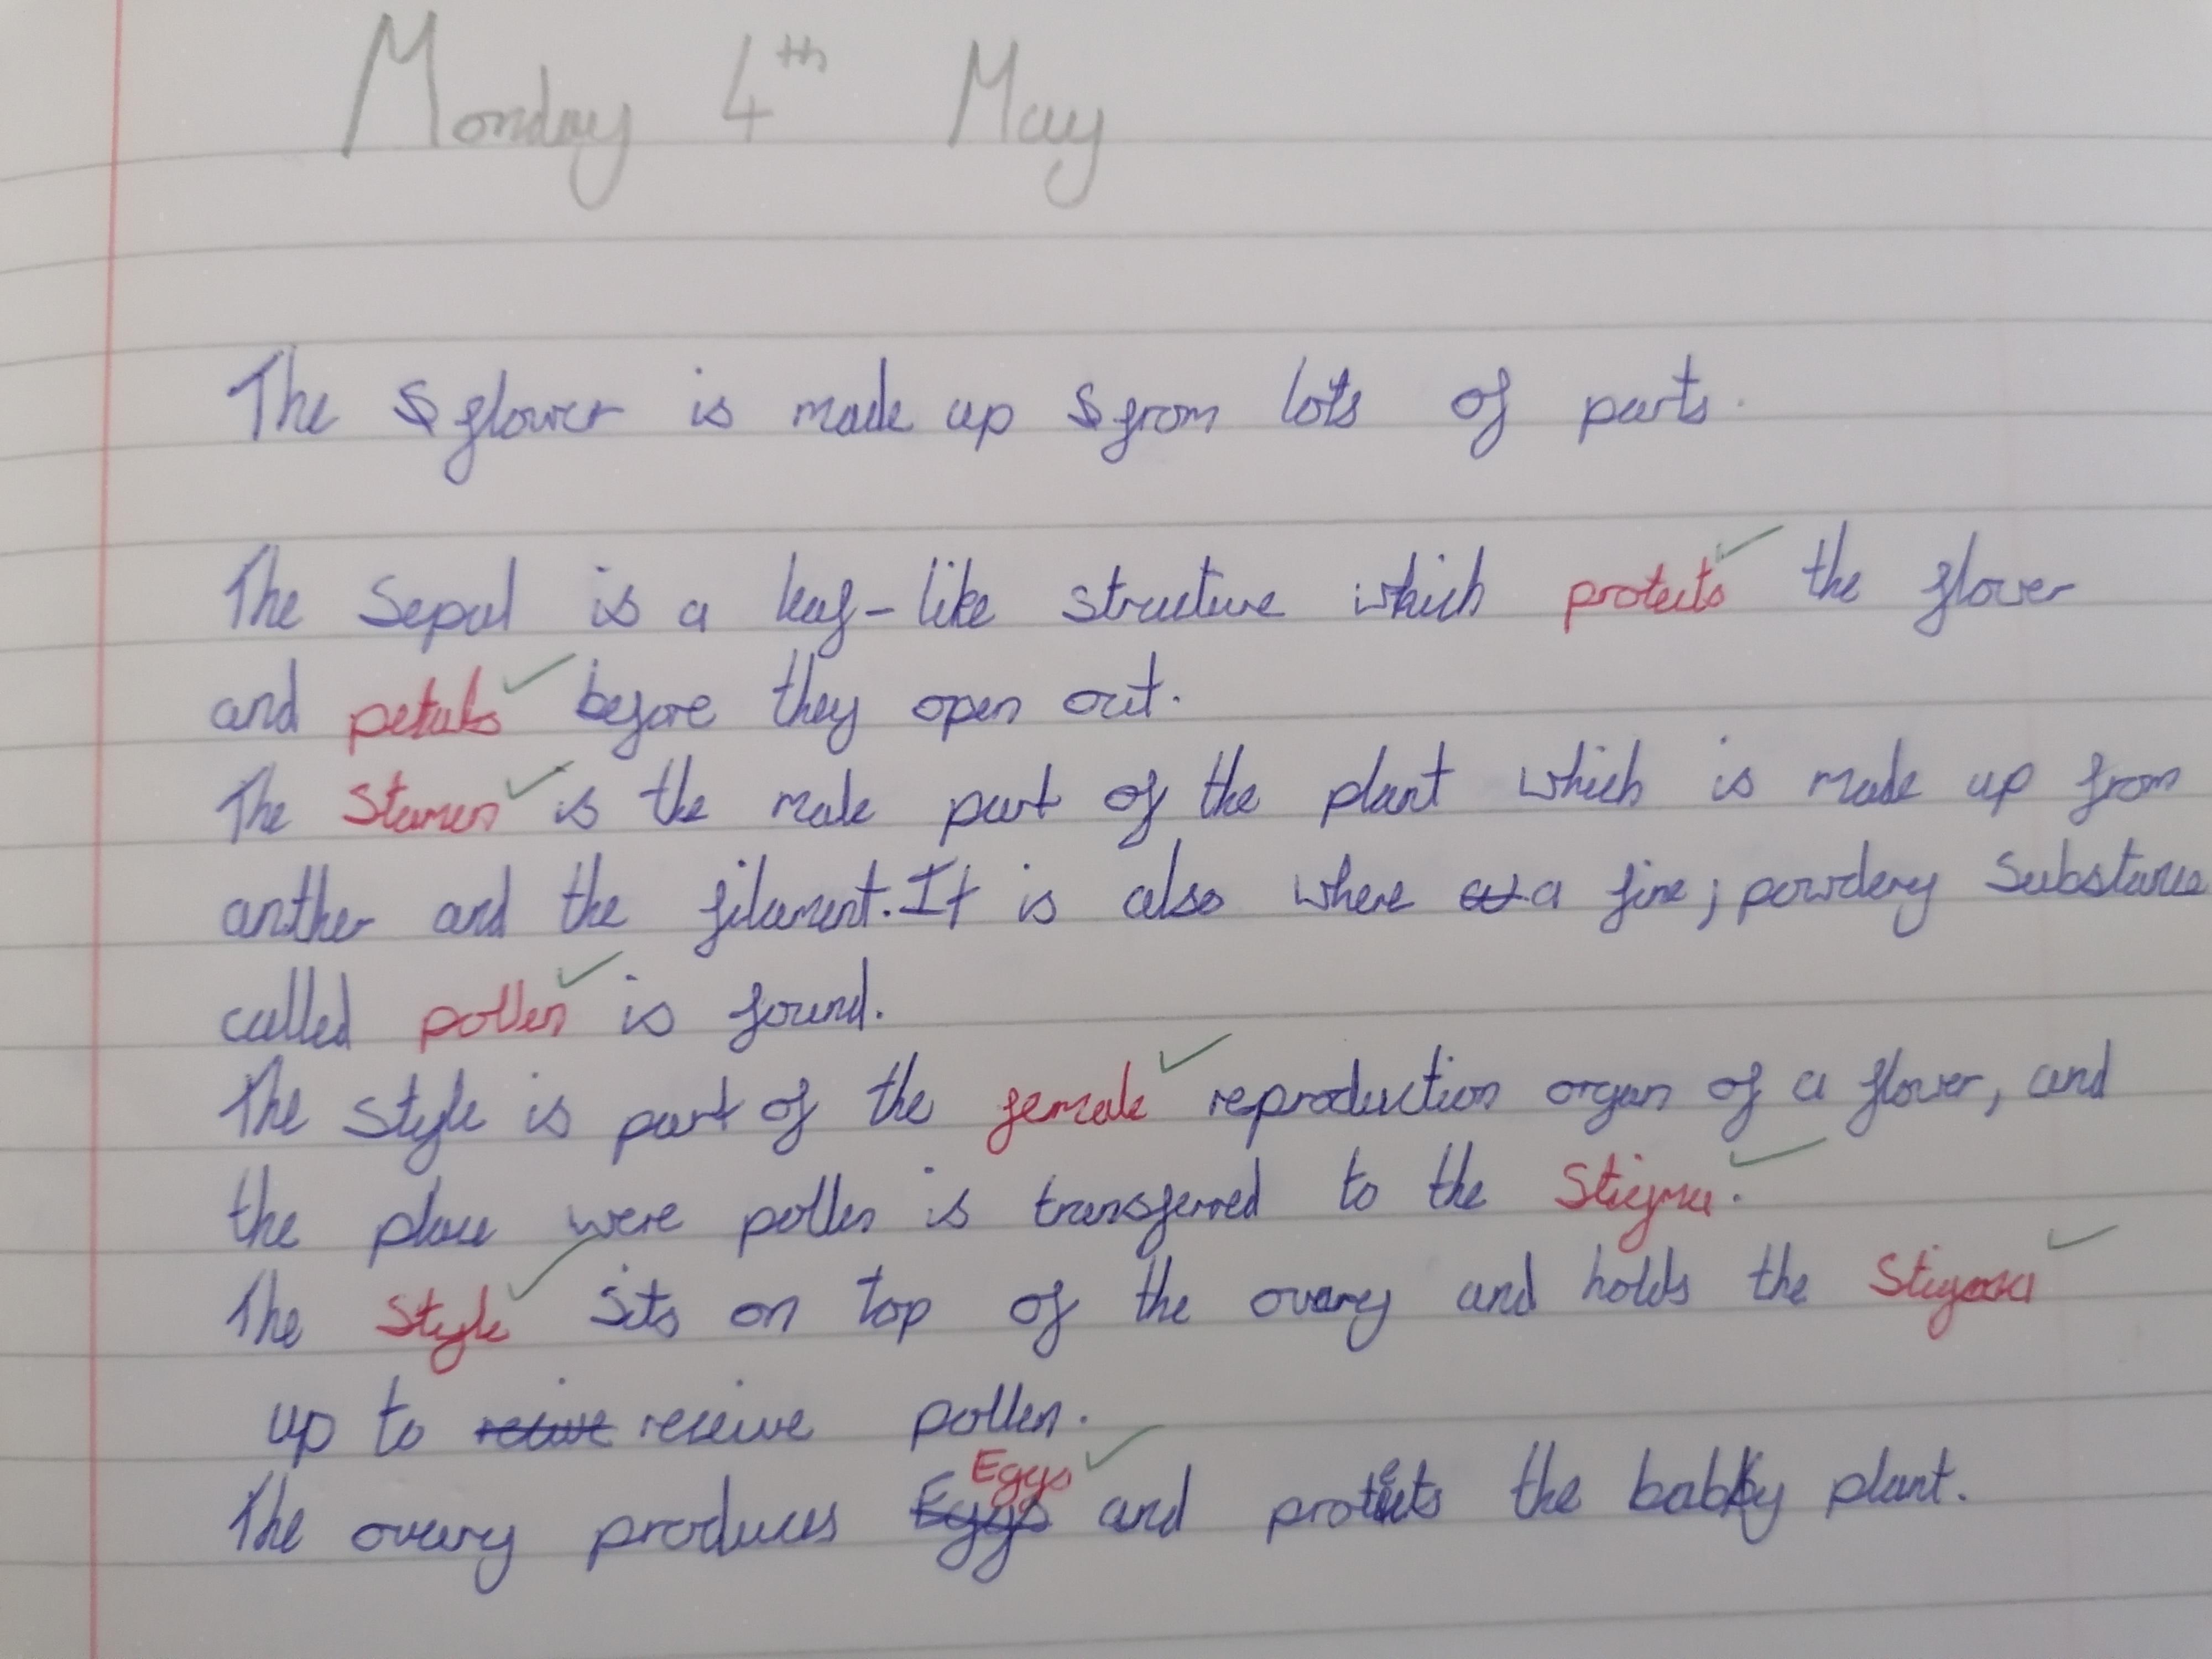 Monday 4th May
The flower is made up from lots of parts.
The Sepal is a leaf-like structure which protects the flower
and petals before they open out.
The Stamen is the male part of the plant which is made up from
anther and the filament. It is also where a fine; powdery Substance
called pollen is found.
The Style is part of the female reproduction organ of a flower, and
the place were pollen is transferred to the Stigma.
The Style Sits on top of the ovary and holds the Stigma
up to receive pollen.
Eggs
The ovary produces Eggs and protects the baby plant.